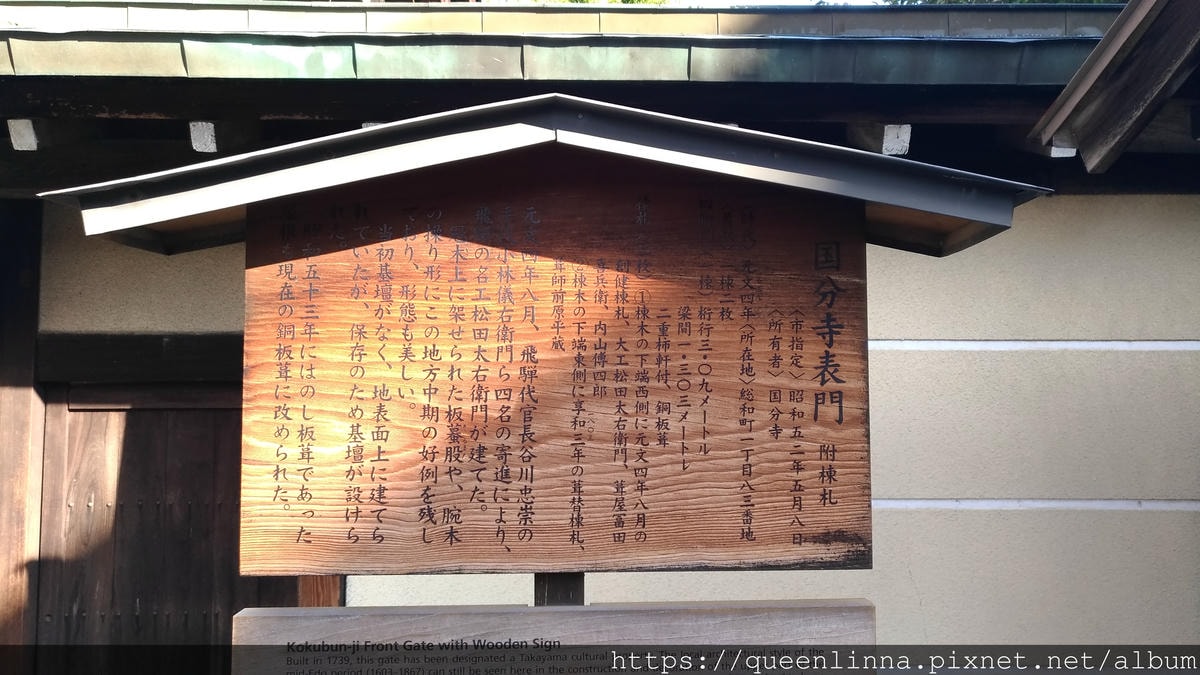 国分寺表門 附棟札
〈市指定〉昭和五二年五月八日
〈所有者〉国分寺
元文四年〈所在地〉総和町一丁目八三番地
棟札二枚
棟〉桁行三・〇九メートル
梁間一・三〇三メートル
二重柿軒付、銅板葺
①棟木の下端西側に元文四年八月の
創健棟札、大工松田太右衛門、葺屋富田
喜兵衛、内山傳四郎
棟木の下端東側に享和三年の葺替棟札、
葺師前原平蔵
元文四年八月、飛騨代官長谷川忠崇の
小林儀右衛門ら四名の寄進により、
飛騨の名工松田太右衛門が建てた。
冠木上に架せられた板蟇股や、腕木
の操り形にこの地方中期の好例を残し
ており、形態も美しい。
当初基壇がなく、地表面上に建てら
れていたが、保存のため基壇が設けら
れた。
昭和五十三年にはのし板葺であった
屋根も現在の銅板葺に改められた。
Kokubun-ji Front Gate with Wooden Sign
Built in 1739, this gate has been designated a Takayama cultural The local architectural style of the
mid-Edo period (1603-1867) can still be seen here in the construction
https://queenlinna.pixnet.net/album